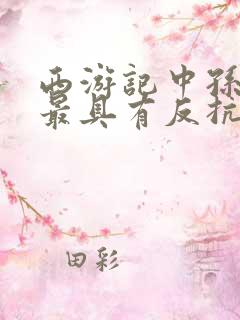 西游記中孫
最具有反抗
田彩